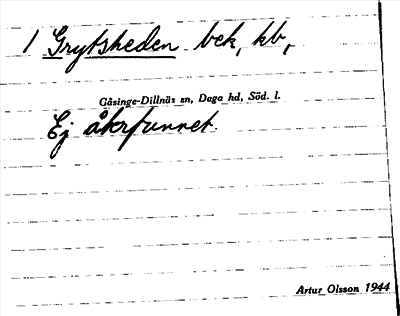 1 Grytsheden bek, kb,
Gåsinge-Dillnäs sn, Daga hd, Söd. l.
Ej återfunnet.
Artur Olsson 1944